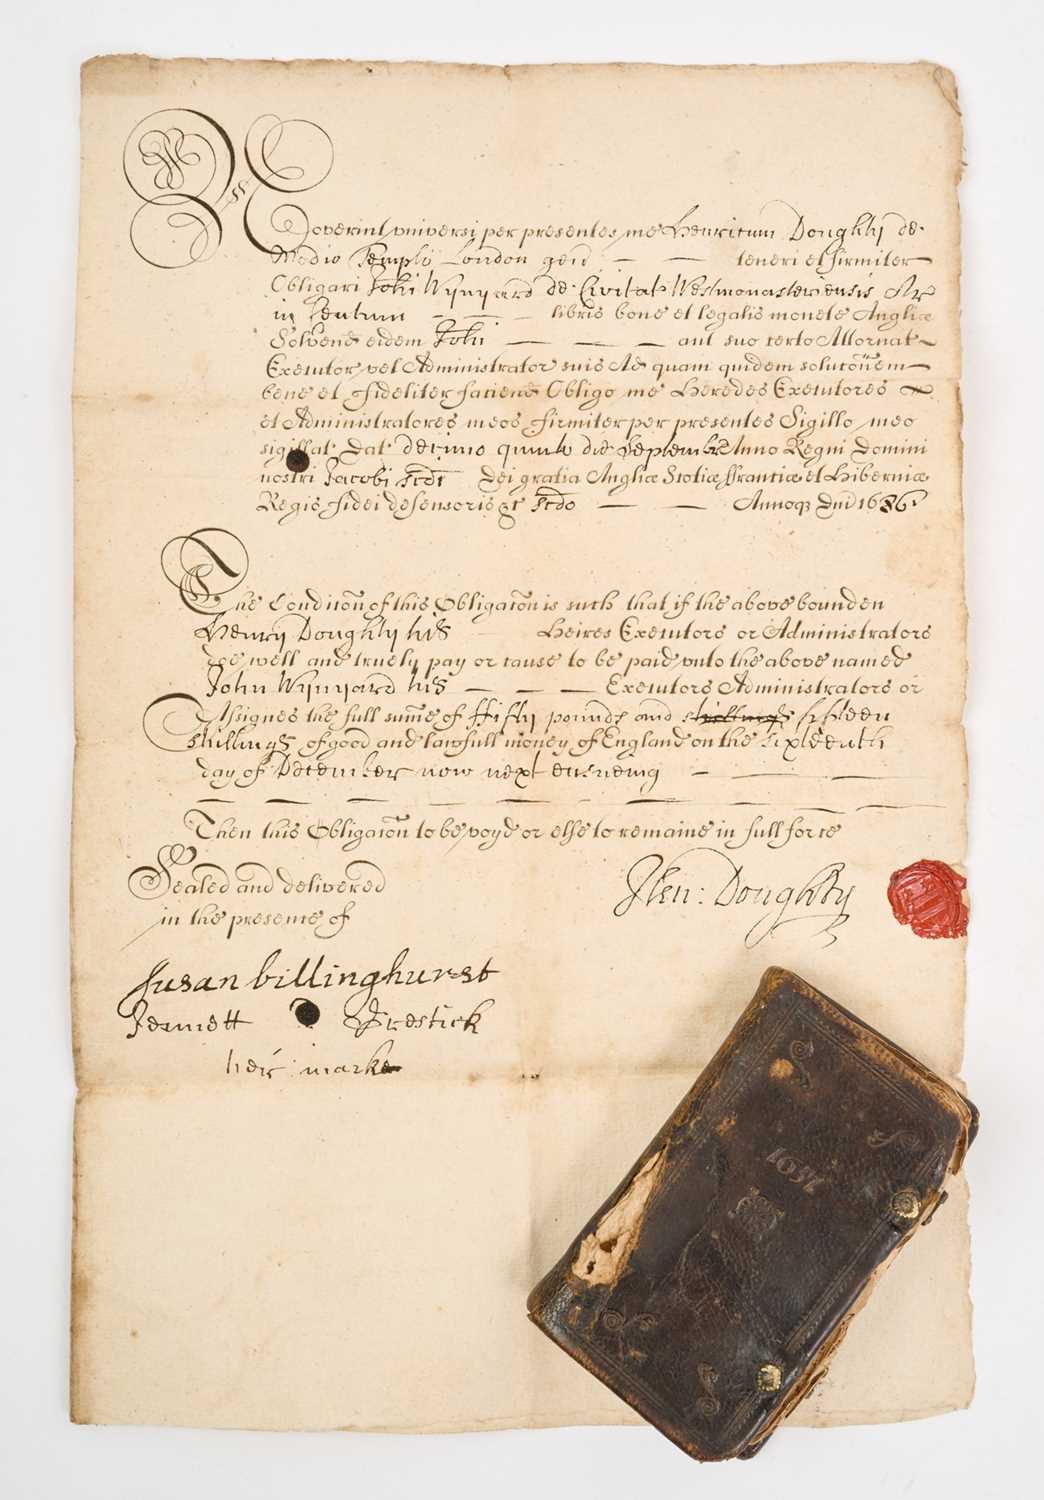 Noverint universi per presentes me Henricum Doughty de
Medio Templo London gen̄ — — teneri et firmiter
Obligari Johi Wynyard de Civitat Westmonasteriensis Ar
in Centum — — — libris bone et legalis monete Angliæ
Solvend eidem Johi — — — aut suo certo Attornat
Executor vel Administrator suis Ad quam quidem soluconem
bene et fideliter faciend Obligo me Heredes Executores
et Administratores meos firmiter per presentes Sigillo meo
sigillat Dat decimo quinto die Septembr Anno Regni Domini
nostri Jacobi scdi Dei gratia Angliæ Scotiæ ffranciæ et Hiberniæ
Regis fidei defensoris &c scdo — — Annoq Dni 1686
The Condicon of this Obligacon is such that if the above bounden
Henry Doughty his Heires Executors or Administrators
doe well and truely pay or cause to be paid unto the above named
John Wynyard his — — — Executors Administrators or
Assignes the full sume of ffifty pounds and shillings fifteen
shillings of good and lawfull money of England on the sixteenth
day of December now next ensueing — — —
Then this Obligacon to be voyd or else to remaine in full force
Sealed and delivered
in the presence of
Hen: Doughty
Susan billinghurst
Jennett Prestick
her marke
1657